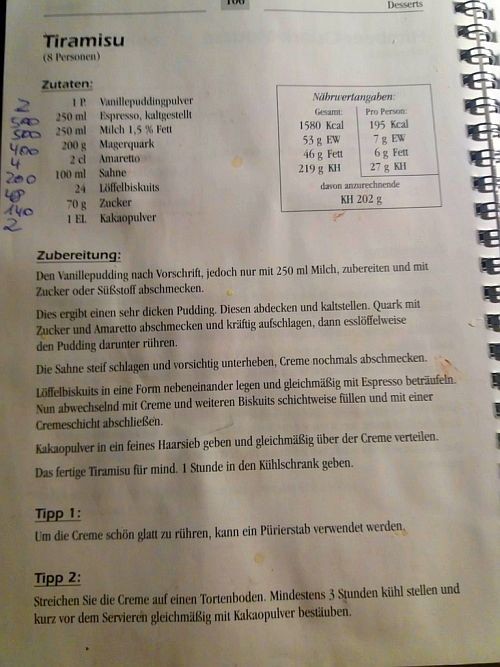 100
Desserts
Tiramisu
(8 Personen)
Zutaten:
2 1 P. Vanillepuddingpulver
500 250 ml Espresso, kaltgestellt
500 250 ml Milch 1,5 % Fett
400 200 g Magerquark
4 2 cl Amaretto
200 100 ml Sahne
48 24 Löffelbiskuits
140 70 g Zucker
2 1 EL Kakaopulver
Nährwertangaben:
Gesamt: Pro Person:
1580 Kcal 195 Kcal
53 g EW 7 g EW
46 g Fett 6 g Fett
219 g KH 27 g KH
davon anzurechnende
KH 202 g
Zubereitung:
Den Vanillepudding nach Vorschrift, jedoch nur mit 250 ml Milch, zubereiten und mit
Zucker oder Süßstoff abschmecken.
Dies ergibt einen sehr dicken Pudding. Diesen abdecken und kaltstellen. Quark mit
Zucker und Amaretto abschmecken und kräftig aufschlagen, dann esslöffelweise
den Pudding darunter rühren.
Die Sahne steif schlagen und vorsichtig unterheben, Creme nochmals abschmecken.
Löffelbiskuits in eine Form nebeneinander legen und gleichmäßig mit Espresso beträufeln.
Nun abwechselnd mit Creme und weiteren Biskuits schichtweise füllen und mit einer
Cremeschicht abschließen.
Kakaopulver in ein feines Haarsieb geben und gleichmäßig über der Creme verteilen.
Das fertige Tiramisu für mind. 1 Stunde in den Kühlschrank geben.
Tipp 1:
Um die Creme schön glatt zu rühren, kann ein Pürierstab verwendet werden.
Tipp 2:
Streichen Sie die Creme auf einen Tortenboden. Mindestens 3 Stunden kühl stellen und
kurz vor dem Servieren gleichmäßig mit Kakaopulver bestäuben.